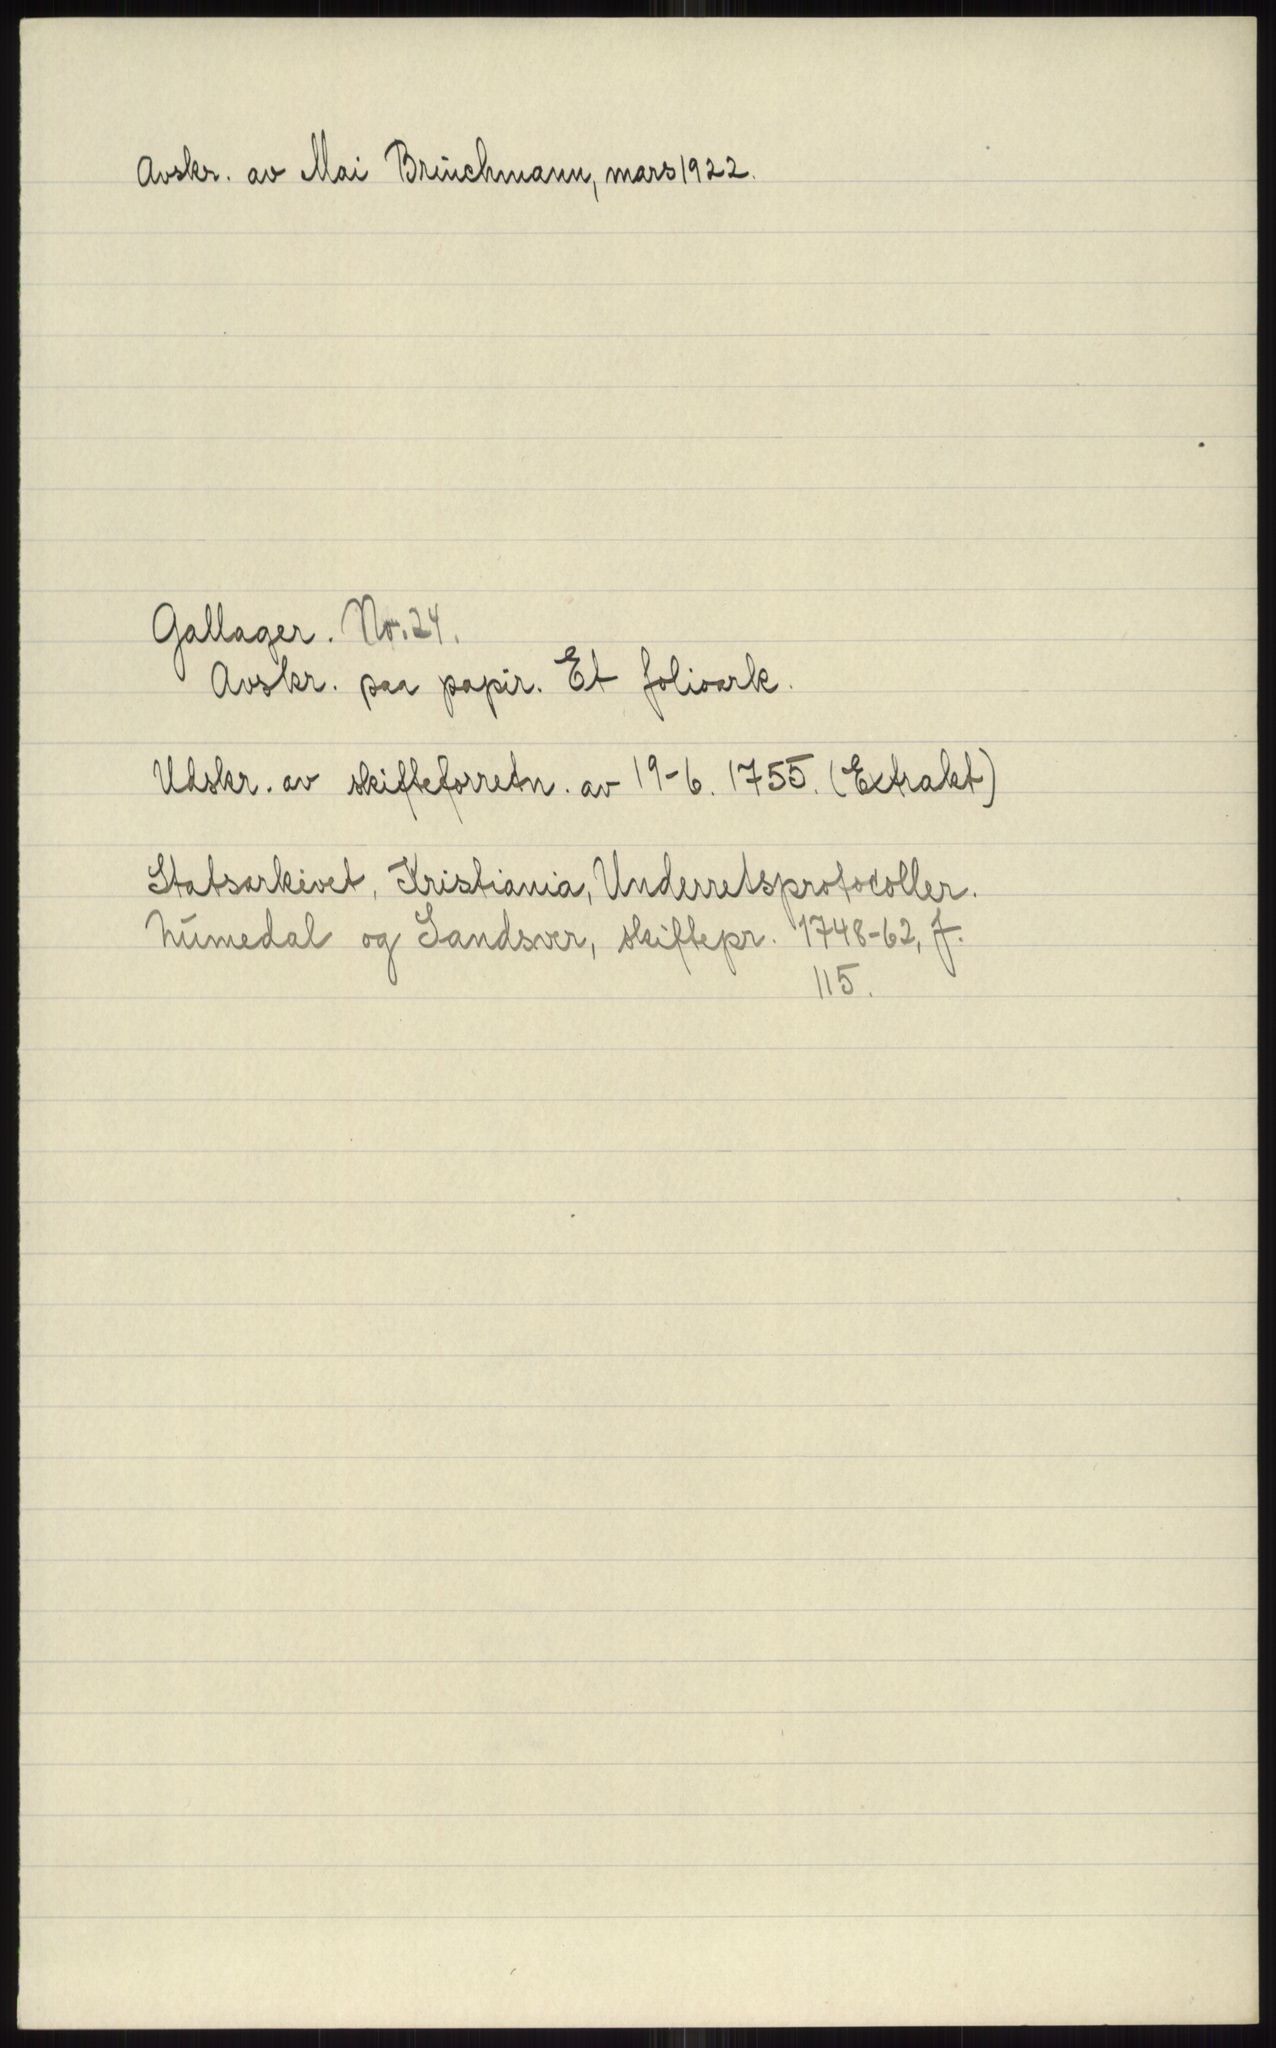 Avskr. av Mai Brüchmann, mars 1922.
Gallager. No. 24.
Avskr. paa papir. Et folioark.
Udskr. av skifteforretn. av 19-6. 1755. (Extrakt)
Statsarkivet, Kristiania, Underretsprotocoller.
Numedal og Sandsver, skiftepr. 1748-62, f.
115.